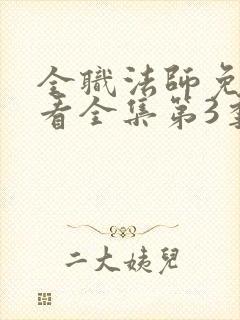 全職法師免
看全集第3季
二大姨兒